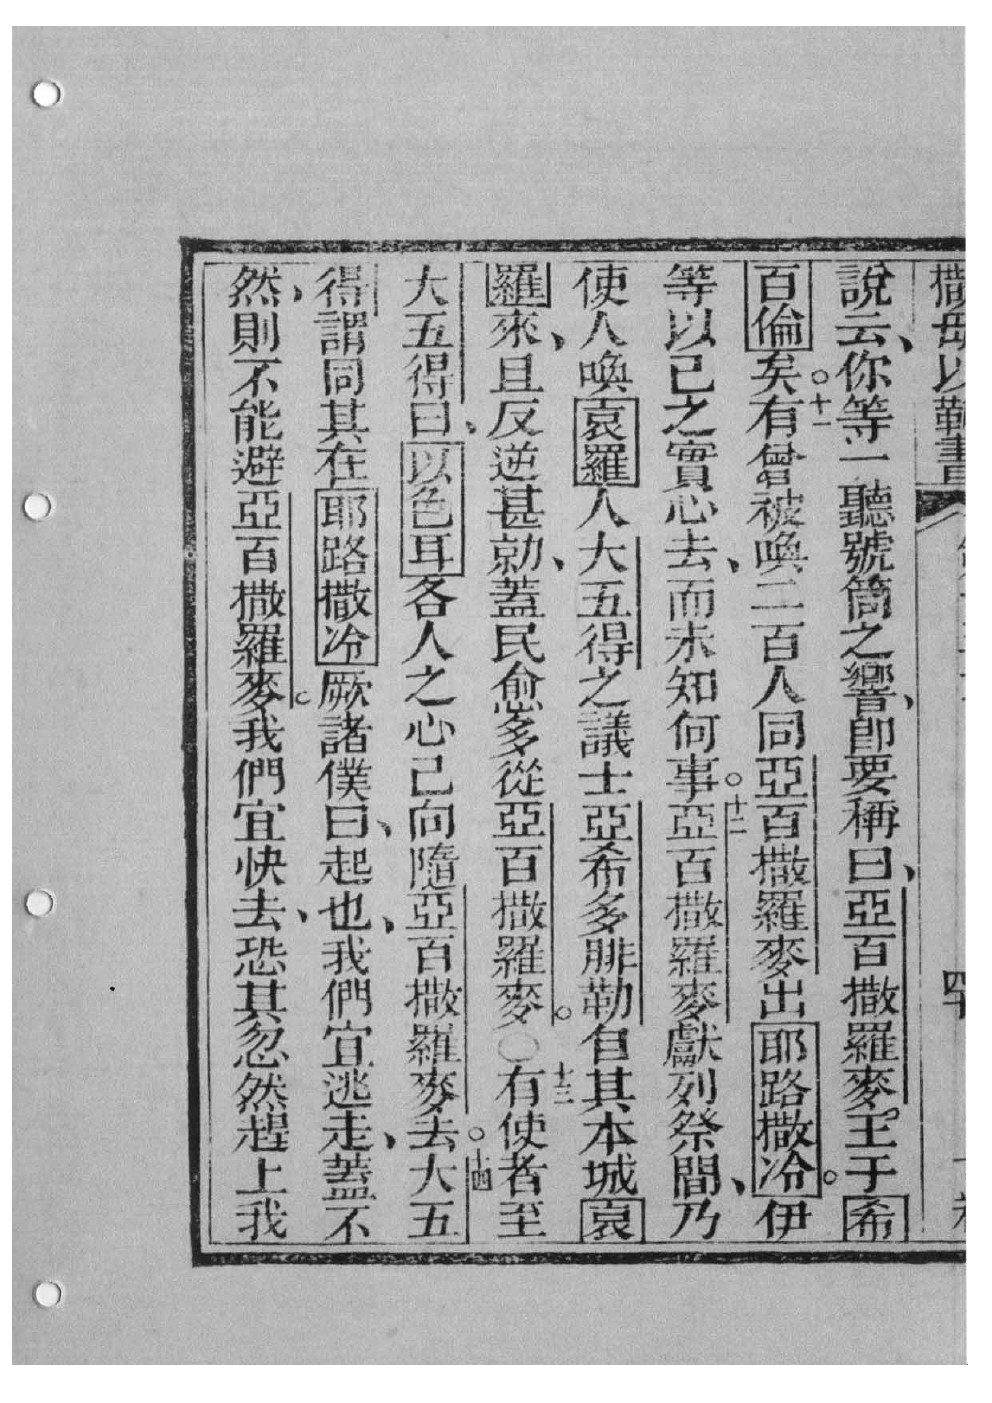 撒母以勒書
四
說云、你等一聽號筒之響、卽要稱曰、亞百撒羅麥。王于希
百倫矣。十一有曾被喚二百人同亞百撒羅麥出耶路撒冷。伊
等以己之實心去、而未知何事。十二亞百撒羅麥獻列祭間、乃
使人喚袁羅人大五得之議士亞希多腓勒自其本城袁
羅來、且反逆甚勍、蓋民愈多從亞百撒羅麥。○十三有使者至
大五得曰、以色耳各人之心已向隨亞百撒羅麥去。十四大五
得謂同其在耶路撒冷厥諸僕曰、起也、我們宜逃走、蓋不
然、則不能避亞百撒羅麥。我們宜快去、恐其忽然趕上我